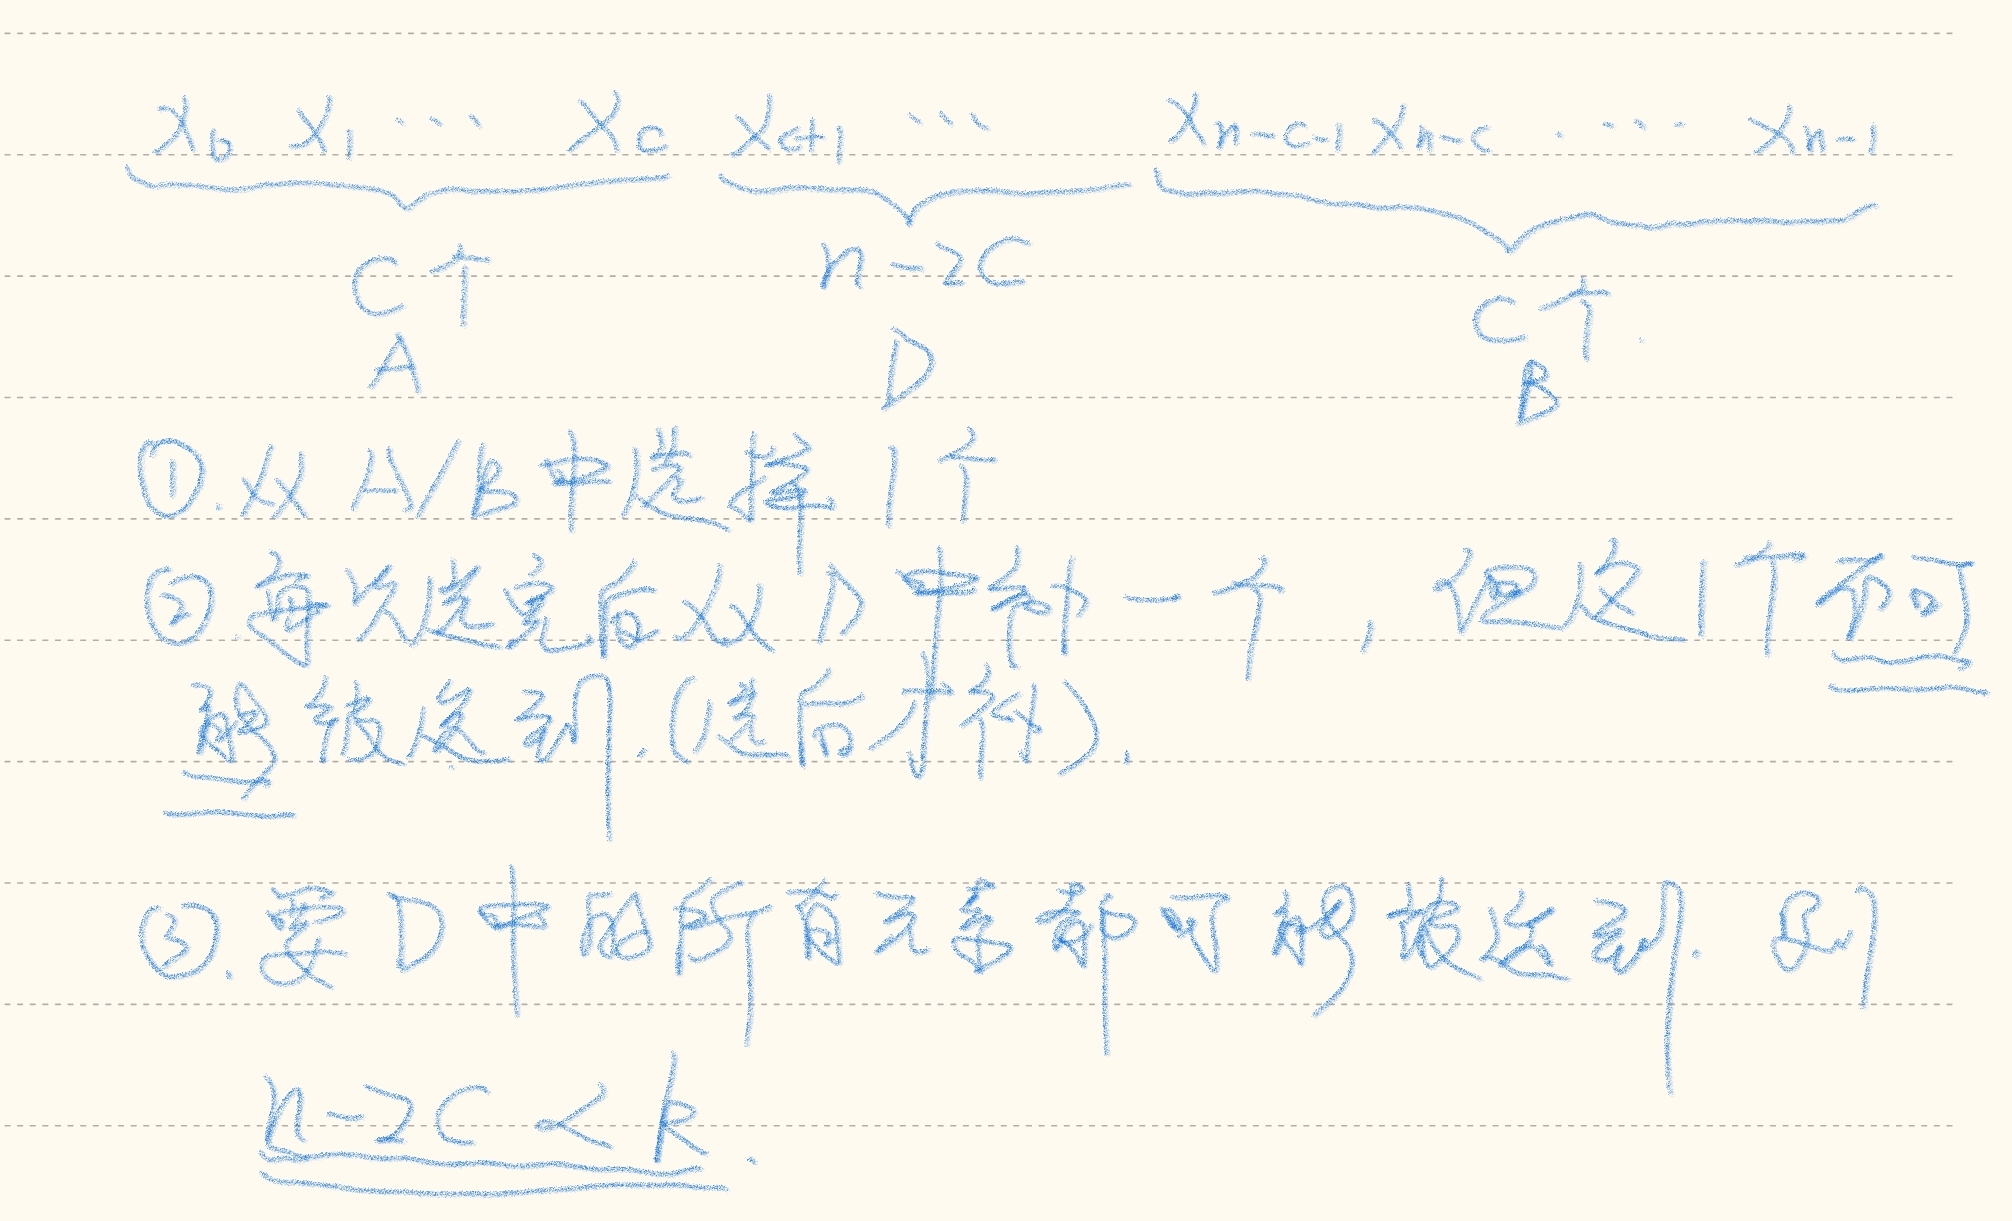 x₀ x₁ ... x_c x_{c+1} ... x_{n-c-1} x_{n-c} ... x_{n-1}
C个 n-2C C个
A D B
①. 从 A/B 中选择 1个
② 每次选完后从 D 中补一个, 但这1个不可
能被选到. (选后才补).
③. 要 D 中的所有元素都可能被选到. 则
n-2C < k.